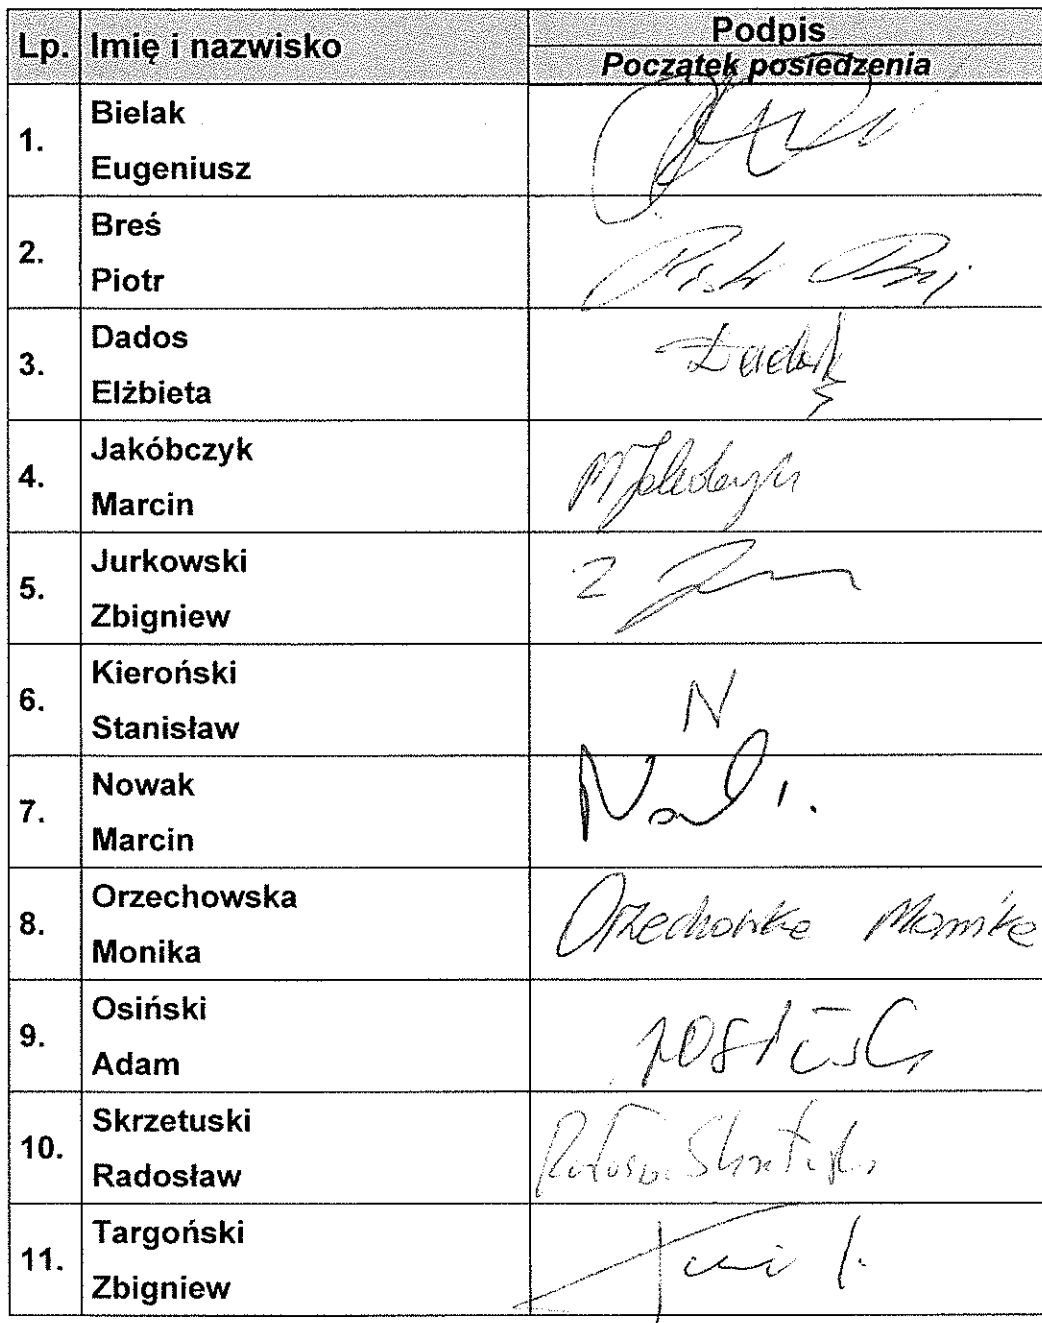 Lp. Imię i nazwisko Podpis
Początek posiedzenia
1. Bielak
Eugeniusz
2. Breś
Piotr
Piotr
3. Dados
Elżbieta
4. Jakóbczyk
Marcin
5. Jurkowski
Zbigniew
Z
6. Kieroński
Stanisław
N
7. Nowak
Marcin
8. Orzechowska
Monika
Orzechowska Monika
9. Osiński
Adam
10. Skrzetuski
Radosław
11. Targoński
Zbigniew